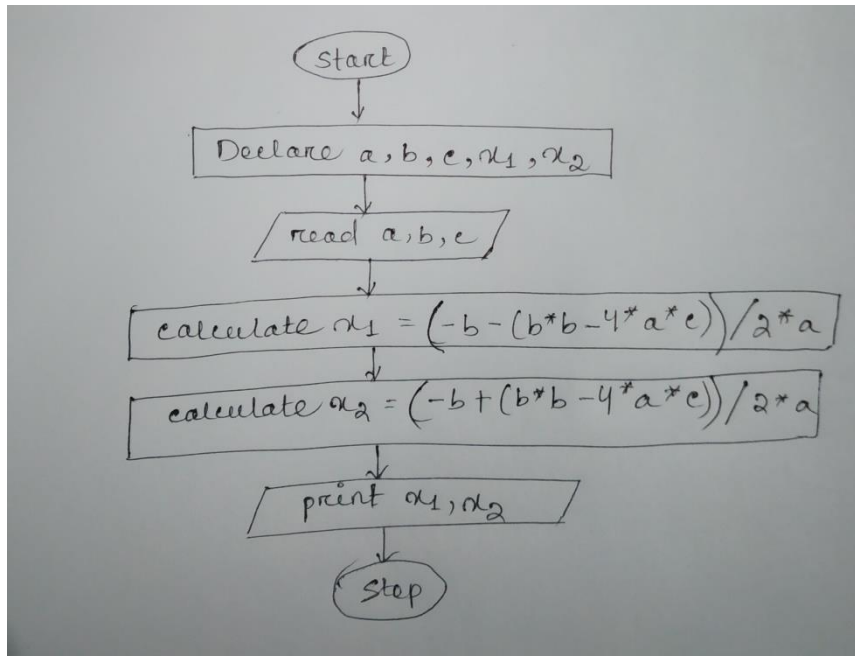 Start
Declare a, b, c, x1, x2
read a, b, c
calculate x1 = (-b-(b*b-4*a*c))/2*a
calculate x2 = (-b+(b*b-4*a*c))/2*a
print x1, x2
Stop